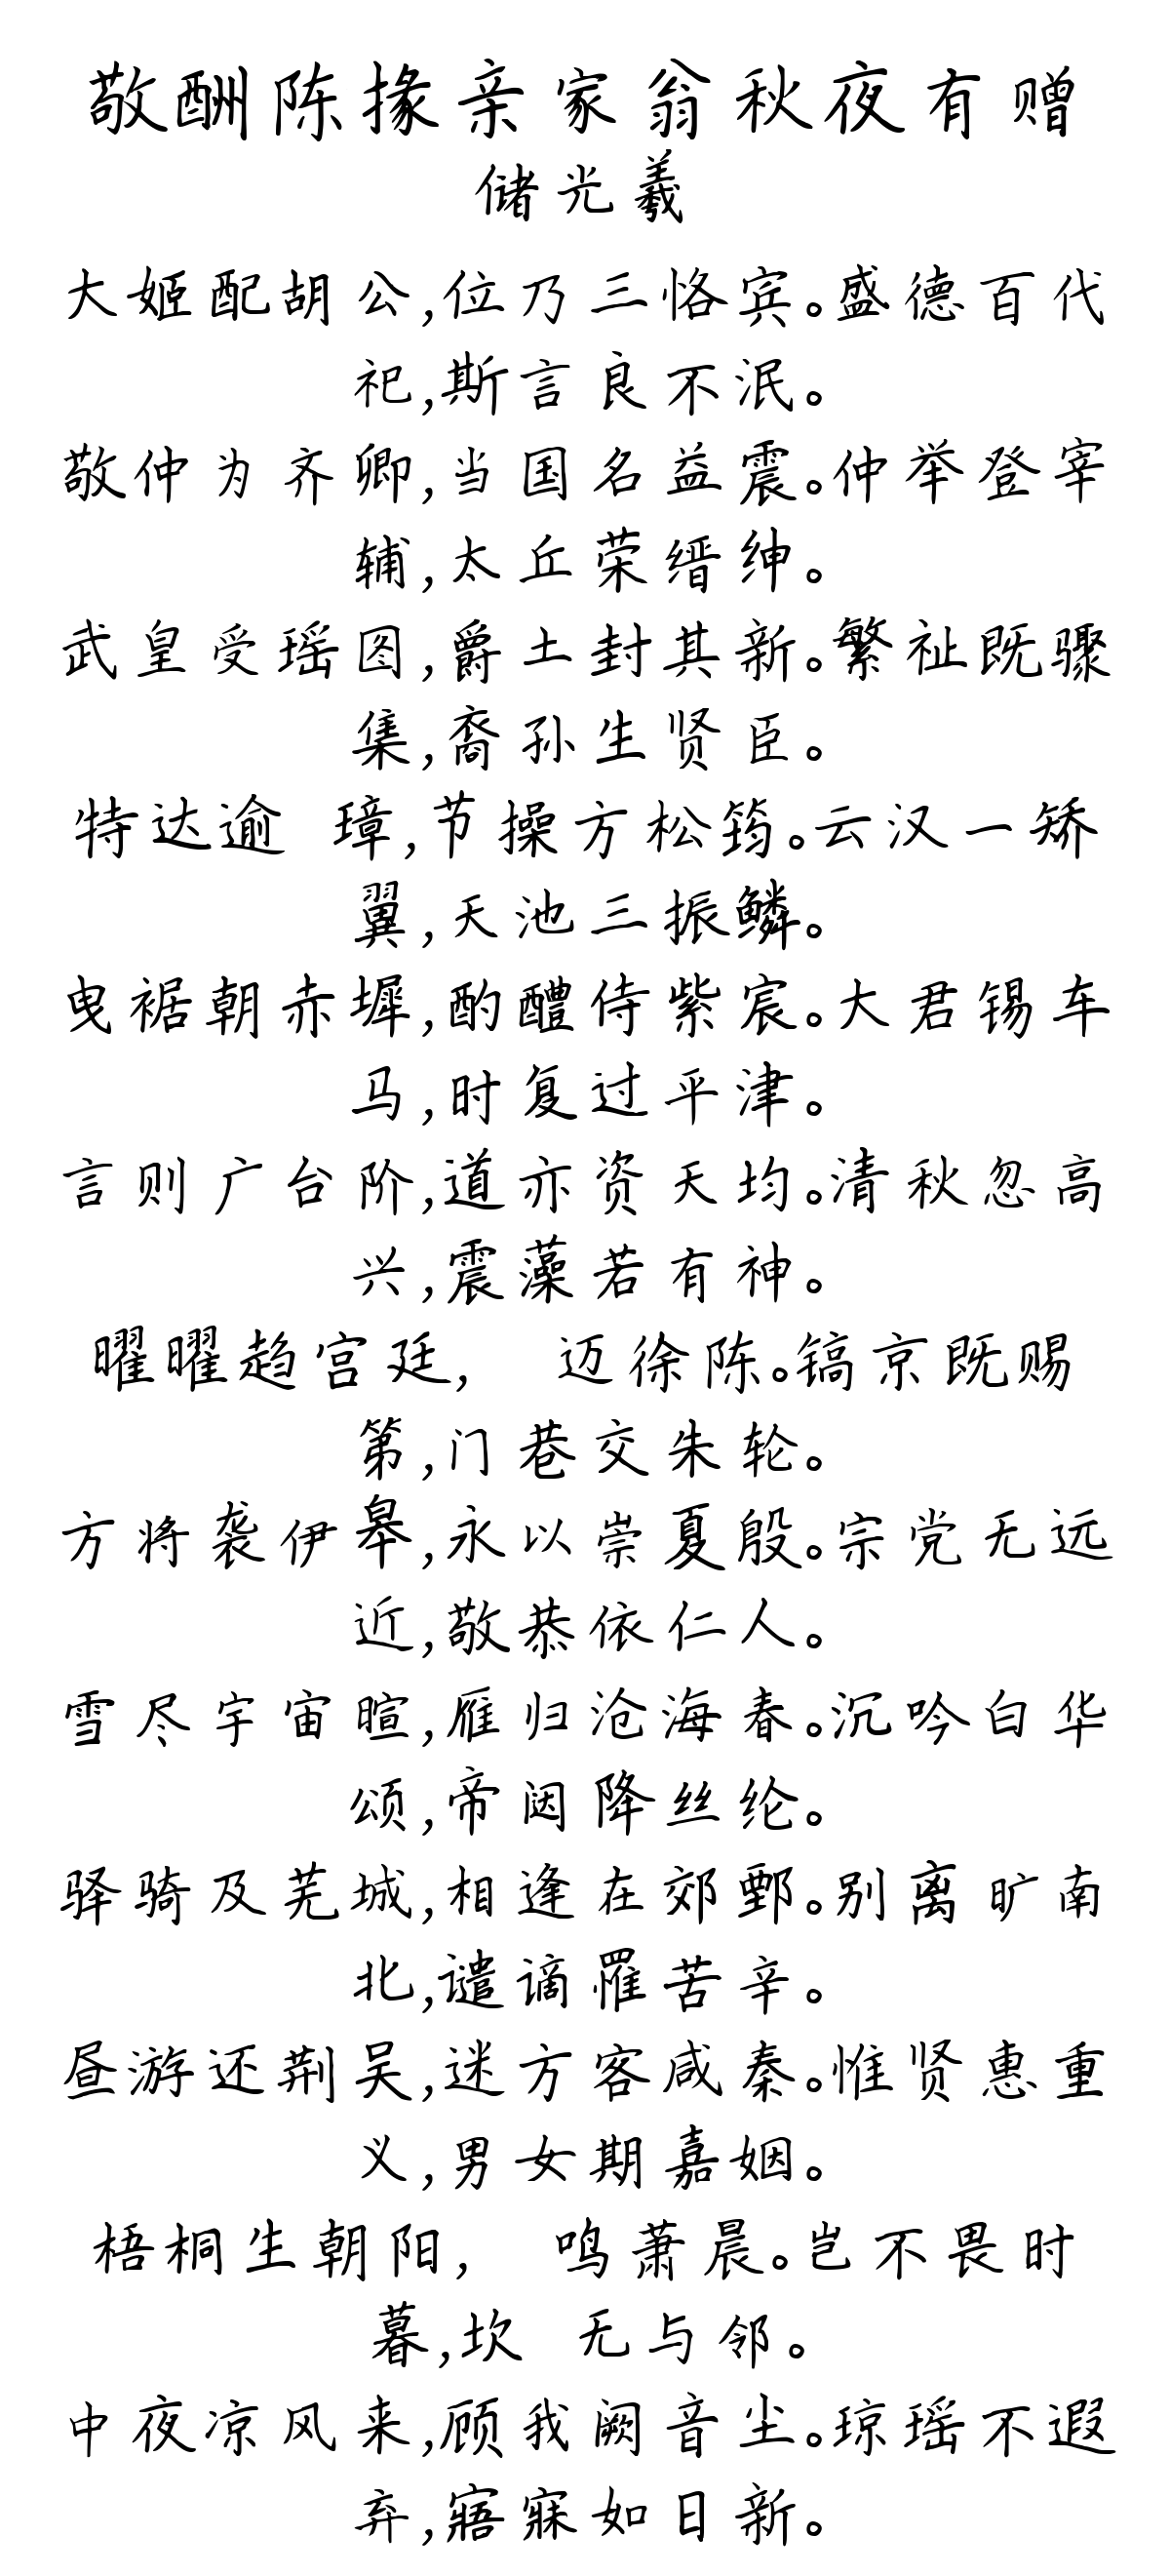 敬酬陈掾亲家翁秋夜有赠
储光羲
大姬配胡公,位乃三恪宾。盛德百代
祀,斯言良不泯。
敬仲为齐卿,当国名益震。仲举登宰
辅,太丘荣缙绅。
武皇受瑶图,爵土封其新。繁祉既骤
集,裔孙生贤臣。
特达逾 璋,节操方松筠。云汉一矫
翼,天池三振鳞。
曳裾朝赤墀,酌醴侍紫宸。大君锡车
马,时复过平津。
言则广台阶,道亦资天均。清秋忽高
兴,震藻若有神。
曜曜趋宫廷, 迈徐陈。镐京既赐
第,门巷交朱轮。
方将袭伊皋,永以崇夏殷。宗党无远
近,敬恭依仁人。
雪尽宇宙暄,雁归沧海春。沉吟白华
颂,帝闼降丝纶。
驿骑及芜城,相逢在郊鄄。别离旷南
北,谴谪罹苦辛。
昼游还荆吴,迷方客咸秦。惟贤惠重
义,男女期嘉姻。
梧桐生朝阳, 鸣萧晨。岂不畏时
暮,坎 无与邻。
中夜凉风来,顾我阙音尘。琼瑶不遐
弃,寤寐如日新。